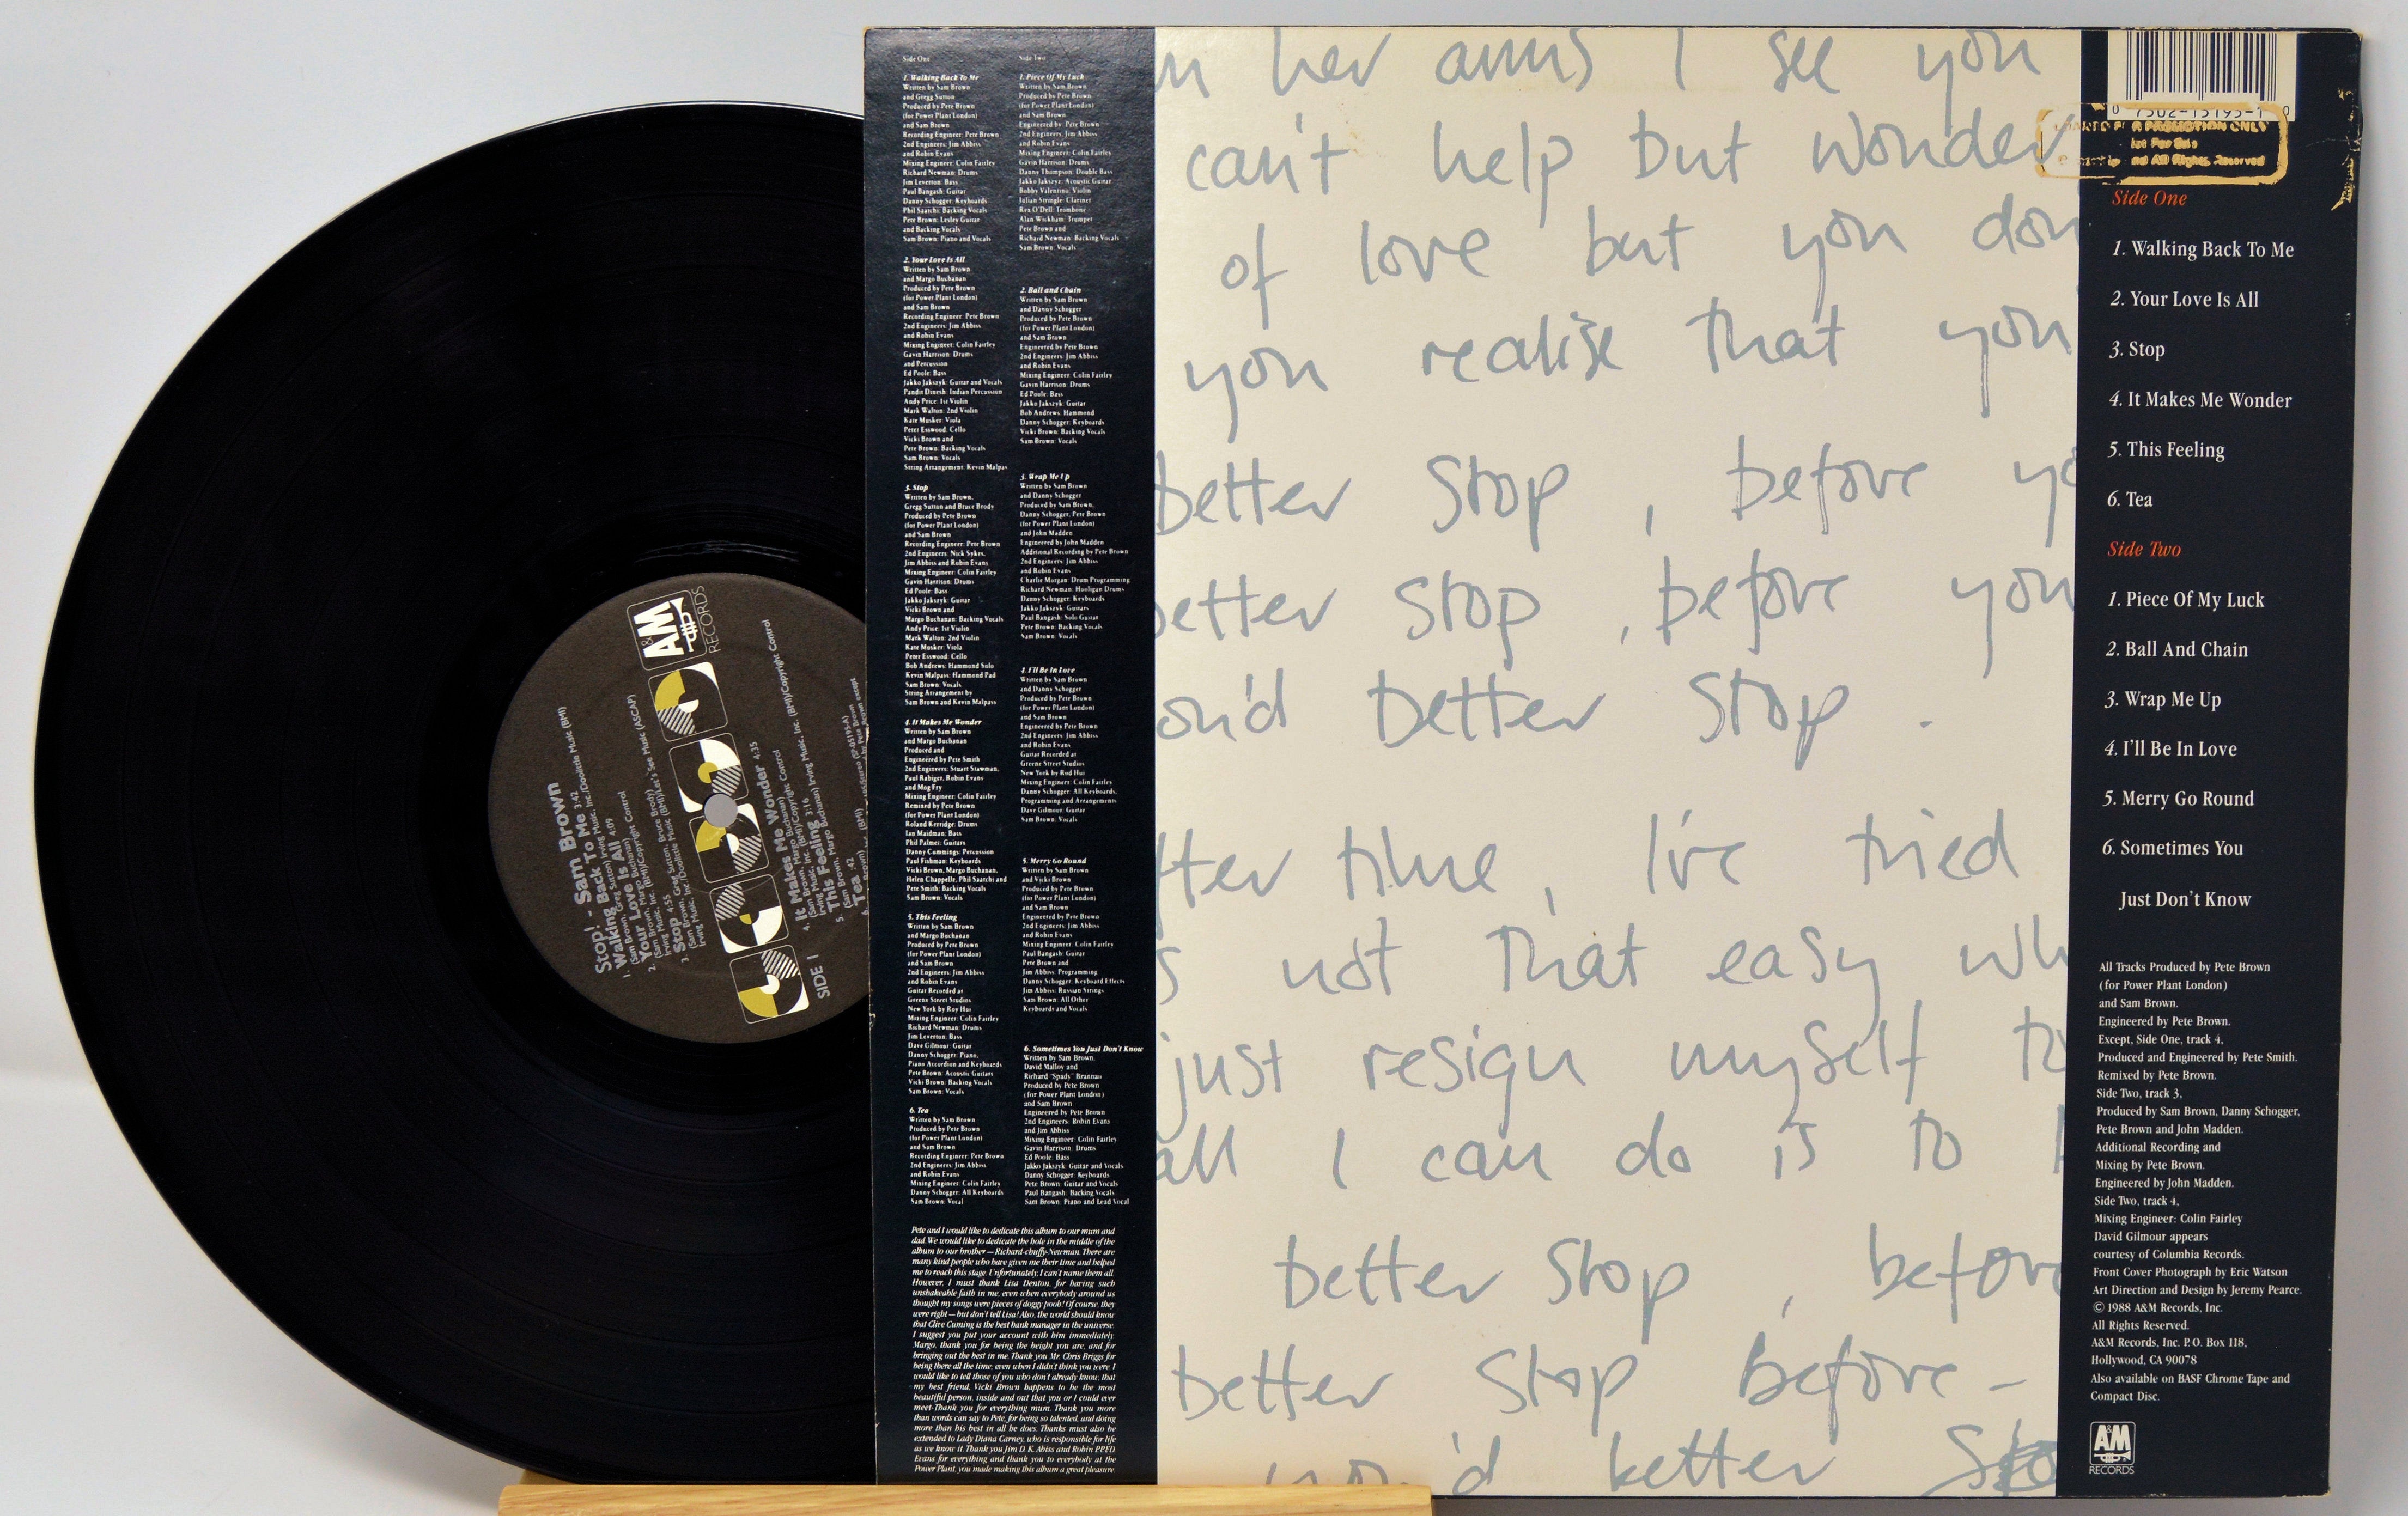 Side One
1. Walking Back To Me
Written by Sam Brown
and Gregg Sutton
Produced by Pete Brown
(for Power Plant London)
and Sam Brown
Recording Engineer: Pete Brown
2nd Engineers: Jim Abbiss
and Robin Evans
Mixing Engineer: Colin Fairley
Richard Newman: Drums
Jim Leverton: Bass
Paul Bangash: Guitar
Danny Schogger: Keyboards
Phil Saatchi: Backing Vocals
Pete Brown: Lesley Guitar
and Backing Vocals
Sam Brown: Piano and Vocals
2. Your Love Is All
Written by Sam Brown
and Margo Buchanan
Produced by Pete Brown
(for Power Plant London)
and Sam Brown
Recording Engineer: Pete Brown
2nd Engineers: Jim Abbiss
and Robin Evans
Mixing Engineer: Colin Fairley
Gavin Harrison: Drums
and Percussion
Ed Poole: Bass
Jakko Jakszyk: Guitar and Vocals
Pandit Dinesh: Indian Percussion
Andy Price: 1st Violin
Mark Walton: 2nd Violin
Kate Musker: Viola
Peter Esswood: Cello
Vicki Brown and
Pete Brown: Backing Vocals
Sam Brown: Vocals
String Arrangement: Kevin Malpas
3. Stop
Written by Sam Brown,
Gregg Sutton and Bruce Brody
Produced by Pete Brown
(for Power Plant London)
and Sam Brown
Recording Engineer: Pete Brown
2nd Engineers: Nick Sykes,
Jim Abbiss and Robin Evans
Mixing Engineer: Colin Fairley
Gavin Harrison: Drums
Ed Poole: Bass
Jakko Jakszyk: Guitar
Vicki Brown and
Margo Buchanan: Backing Vocals
Andy Price: 1st Violin
Mark Walton: 2nd Violin
Kate Musker: Viola
Peter Esswood: Cello
Bob Andrews: Hammond Solo
Kevin Malpass: Hammond Pad
Sam Brown: Vocals
String Arrangement by
Sam Brown and Kevin Malpass
4. It Makes Me Wonder
Written by Sam Brown
and Margo Buchanan
Produced and
Engineered by Pete Smith
2nd Engineers: Stuart Stawman,
Paul Rabiger, Robin Evans
and Mog Fry
Mixing Engineer: Colin Fairley
Remixed by Pete Brown
(for Power Plant London)
Roland Kerridge: Drums
Ian Maidman: Bass
Phil Palmer: Guitars
Danny Cummings: Percussion
Paul Fishman: Keyboards
Vicki Brown, Margo Buchanan,
Helen Chappelle, Phil Saatchi and
Pete Smith: Backing Vocals
Sam Brown: Vocals
5. This Feeling
Written by Sam Brown
and Margo Buchanan
Produced by Pete Brown
(for Power Plant London)
and Sam Brown
2nd Engineers: Jim Abbiss
and Robin Evans
Guitar Recorded at
Greene Street Studios
New York by Roy Hui
Mixing Engineer: Colin Fairley
Richard Newman: Drums
Jim Leverton: Bass
Dave Gilmour: Guitar
Danny Schogger: Piano,
Piano Accordion and Keyboards
Pete Brown: Acoustic Guitars
Vicki Brown: Backing Vocals
Sam Brown: Vocals
6. Tea
Written by Sam Brown
Produced by Pete Brown
(for Power Plant London)
and Sam Brown
Recording Engineer: Pete Brown
2nd Engineers: Jim Abbiss
and Robin Evans
Mixing Engineer: Colin Fairley
Danny Schogger: All Keyboards
Sam Brown: Vocal
Side Two
1. Piece Of My Luck
Written by Sam Brown
Produced by Pete Brown
(for Power Plant London)
and Sam Brown
Engineered by: Pete Brown
2nd Engineers: Jim Abbiss
and Robin Evans
Mixing Engineer: Colin Fairley
Gavin Harrison: Drums
Danny Thompson: Double Bass
Jakko Jakszyc: Acoustic Guitar
Bobby Valentino: Violin
Julian Stringle: Clarinet
Rex O'Dell: Trombone
Alan Wickham: Trumpet
Pete Brown and
Richard Newman: Backing Vocals
Sam Brown: Vocals
2. Ball and Chain
Written by Sam Brown
and Danny Schogger
Produced by Pete Brown
(for Power Plant London)
and Sam Brown
Engineered by Pete Brown
2nd Engineers: Jim Abbiss
and Robin Evans
Mixing Engineer: Colin Fairley
Gavin Harrison: Drums
Ed Poole: Bass
Jakko Jakszyk: Guitar
Bob Andrews: Hammond
Danny Schogger: Keyboards
Vicki Brown: Backing Vocals
Sam Brown: Vocals
3. Wrap Me Up
Written by Sam Brown
and Danny Schogger
Produced by Sam Brown,
Danny Schogger, Pete Brown
(for Power Plant London)
and John Madden
Engineered by John Madden
Additional Recording by Pete Brown
2nd Engineers: Jim Abbiss
and Robin Evans
Charlie Morgan: Drum Programming
Richard Newman: Hooligan Drums
Danny Schogger: Keyboards
Jakko Jakszyk: Guitars
Paul Bangash: Solo Guitar
Pete Brown: Backing Vocals
Sam Brown: Vocals
4. I'll Be In Love
Written by Sam Brown
and Danny Schogger
Produced by Pete Brown
(for Power Plant London)
and Sam Brown
Engineered by Pete Brown
2nd Engineers: Jim Abbiss
and Robin Evans
Guitar Recorded at
Greene Street Studios
New York by Rod Hui
Mixing Engineer: Colin Fairley
Danny Schogger: All Keyboards,
Programming and Arrangements
Dave Gilmour: Guitar
Sam Brown: Vocals
5. Merry Go Round
Written by Sam Brown
and Vicki Brown
Produced by Pete Brown
(for Power Plant London)
and Sam Brown
Engineered by Pete Brown
2nd Engineers: Jim Abbiss
and Robin Evans
Mixing Engineer: Colin Fairley
Paul Bangash: Guitar
Pete Brown and
Jim Abbiss: Programming
Danny Schogger: Keyboard Effects
Jim Abbiss: Russian Strings
Sam Brown: All Other
Keyboards and Vocals
6. Sometimes You Just Don't Know
Written by Sam Brown,
David Malloy and
Richard "Spady" Brannan
Produced by Pete Brown
(for Power Plant London)
and Sam Brown
Engineered by Pete Brown
2nd Engineers: Robin Evans
and Jim Abbiss
Mixing Engineer: Colin Fairley
Gavin Harrison: Drums
Ed Poole: Bass
Jakko Jakszyk: Guitar and Vocals
Danny Schogger: Keyboards
Pete Brown: Guitar and Vocals
Paul Bangash: Backing Vocals
Sam Brown: Piano and Lead Vocal
Pete and I would like to dedicate this album to our mum and
dad. We would like to dedicate the hole in the middle of the
album to our brother — Richard-chuffy-Newman. There are
many kind people who have given me their time and helped
me to reach this stage. Unfortunately, I can't name them all.
However, I must thank Lisa Denton, for having such
unshakeable faith in me, even when everybody around us
thought my songs were pieces of doggy pooh! Of course, they
were right — but don't tell Lisa! Also, the world should know
that Clive Cuming is the best bank manager in the universe.
I suggest you put your account with him immediately.
Margo, thank you for being the height you are, and for
bringing out the best in me. Thank you Mr. Chris Briggs for
being there all the time; even when I didn't think you were. I
would like to tell those of you who don't already know; that
my best friend, Vicki Brown happens to be the most
beautiful person, inside and out that you or I could ever
meet-Thank you for everything mum. Thank you more
than words can say to Pete, for being so talented, and doing
more than his best in all he does. Thanks must also be
extended to Lady Diana Carney, who is responsible for life
as we know it. Thank you Jim D. K. Abiss and Robin P.P.F.D.
Evans for everything and thank you to everybody at the
Power Plant, you made making this album a great pleasure.
A&M
RECORDS
Stop! - Sam Brown
1. Walking Back To Me 3:42
(Sam Brown, Greg Sutton) Irving Music, Inc./Doolittle Music (BMI)
2. Your Love Is All 4:09
(Sam Brown, Margo Buchanan)
Irving Music, Inc. (BMI)/Copyright Control
3. Stop 4:55
(Sam Brown, Greg Sutton, Bruce Brody)
Irving Music, Inc./Doolittle Music (BMI)/Let's See Music (ASCAP)
4. It Makes Me Wonder 4:35
(Sam Brown, Margo Buchanan)
Irving Music, Inc. (BMI)/Copyright Control
5. This Feeling 3:16
(Sam Brown, Margo Buchanan) Irving Music, Inc. (BMI)/Copyright Control
6. Tea :42
SIDE 1
her arms I see you
can't help but wonder
of love but you don
you realise that you
better stop, before yo
better stop, before you
ou'd better stop.
fter time, I've tried
s not that easy wh
just resign myself to
all I can do is to
better stop, before
better stop before -
you'd better Sto
0 7502-15195-1 0
PROMOTION ONLY
All Rights Reserved
Side One
1. Walking Back To Me
2. Your Love Is All
3. Stop
4. It Makes Me Wonder
5. This Feeling
6. Tea
Side Two
1. Piece Of My Luck
2. Ball And Chain
3. Wrap Me Up
4. I'll Be In Love
5. Merry Go Round
6. Sometimes You
Just Don't Know
All Tracks Produced by Pete Brown
(for Power Plant London)
and Sam Brown.
Engineered by Pete Brown.
Except, Side One, track 4,
Produced and Engineered by Pete Smith.
Remixed by Pete Brown.
Side Two, track 3,
Produced by Sam Brown, Danny Schogger,
Pete Brown and John Madden.
Additional Recording and
Mixing by Pete Brown.
Engineered by John Madden.
Side Two, track 4,
Mixing Engineer: Colin Fairley
David Gilmour appears
courtesy of Columbia Records.
Front Cover Photograph by Eric Watson
Art Direction and Design by Jeremy Pearce.
© 1988 A&M Records, Inc.
All Rights Reserved.
A&M Records, Inc. P.O. Box 118,
Hollywood, CA 90078
Also available on BASF Chrome Tape and
Compact Disc.
A&M
RECORDS